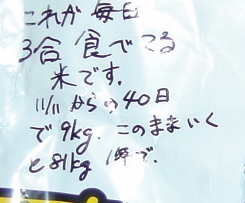 これが毎日
3合食べてる
米です.
11/11からの40日
で9kg.このままいく
と81kg 1年で.